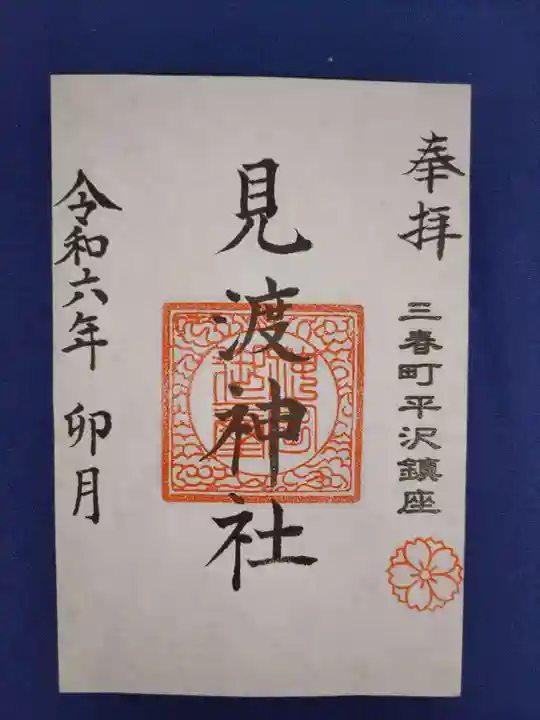 奉拝
三春町平沢鎮座
見渡神社
令和六年 卯月